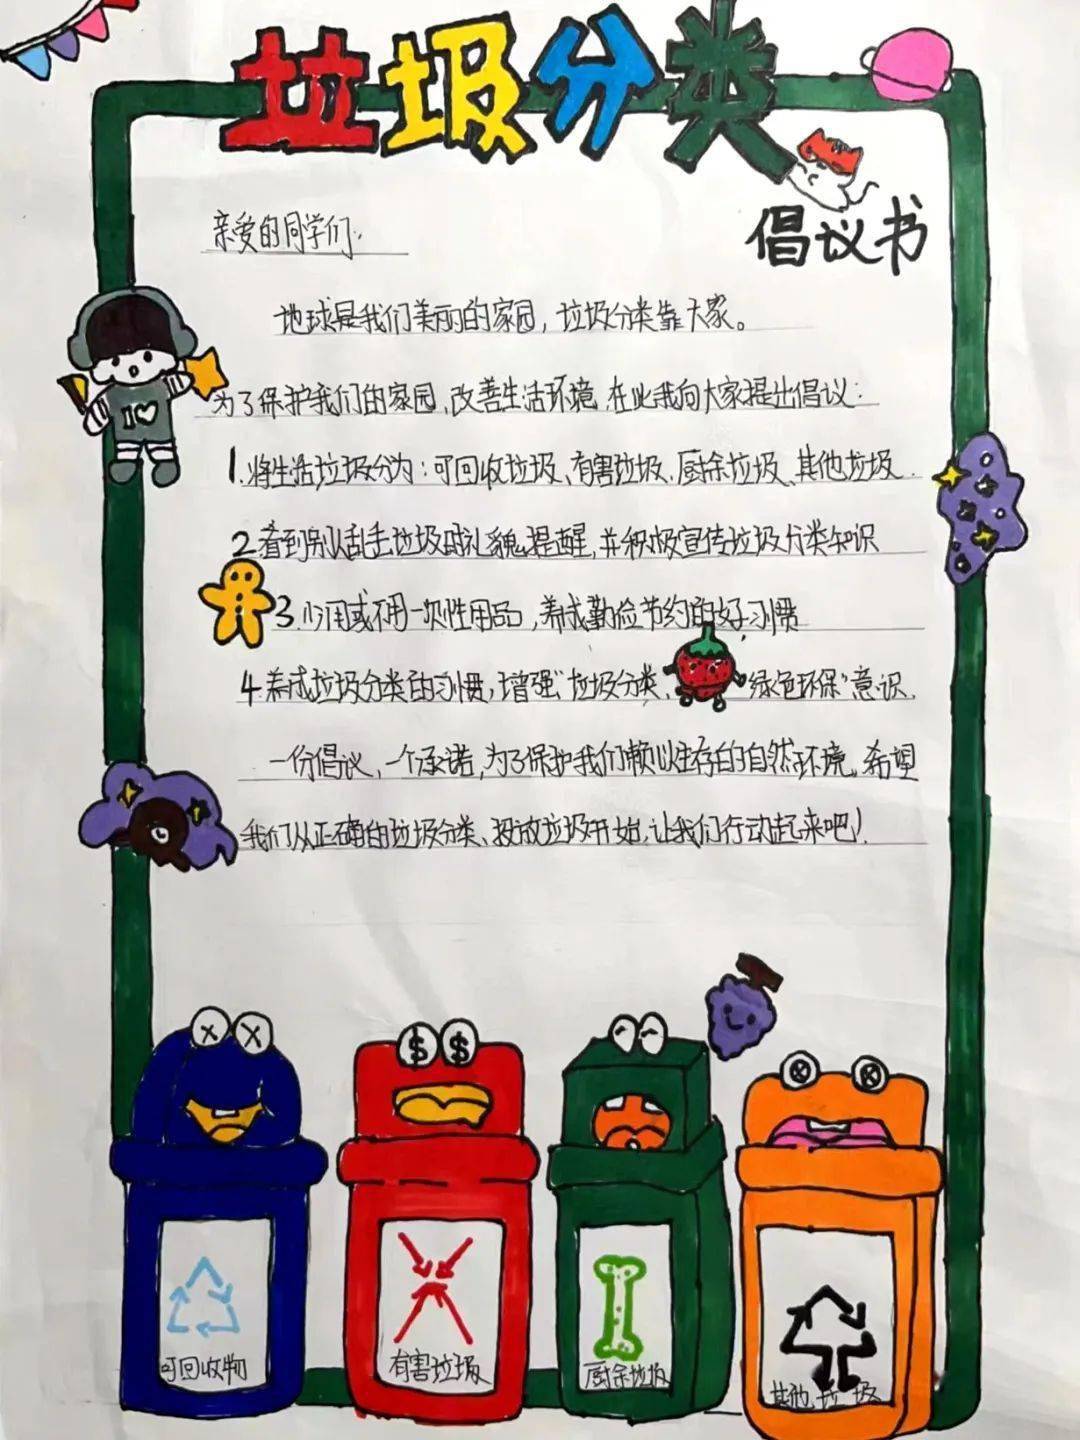 垃圾分类
倡议书
亲爱的同学们:
地球是我们美丽的家园,垃圾分类靠大家。
为了保护我们的家园,改善生活环境,在此我向大家提出倡议:
1.将生活垃圾分为:可回收垃圾、有害垃圾、厨余垃圾、其他垃圾.
2.看到别人乱丢垃圾时礼貌提醒,并积极宣传垃圾分类知识
3.少用或不用一次性用品,养成勤俭节约的好习惯
4.养成垃圾分类的习惯,增强“垃圾分类、绿色环保”意识.
一份倡议,一个承诺,为了保护我们赖以生存的自然环境。希望
我们从正确的垃圾分类、投放垃圾开始,让我们行动起来吧!
I
$ $
可回收物
有害垃圾
厨余垃圾
其他垃圾